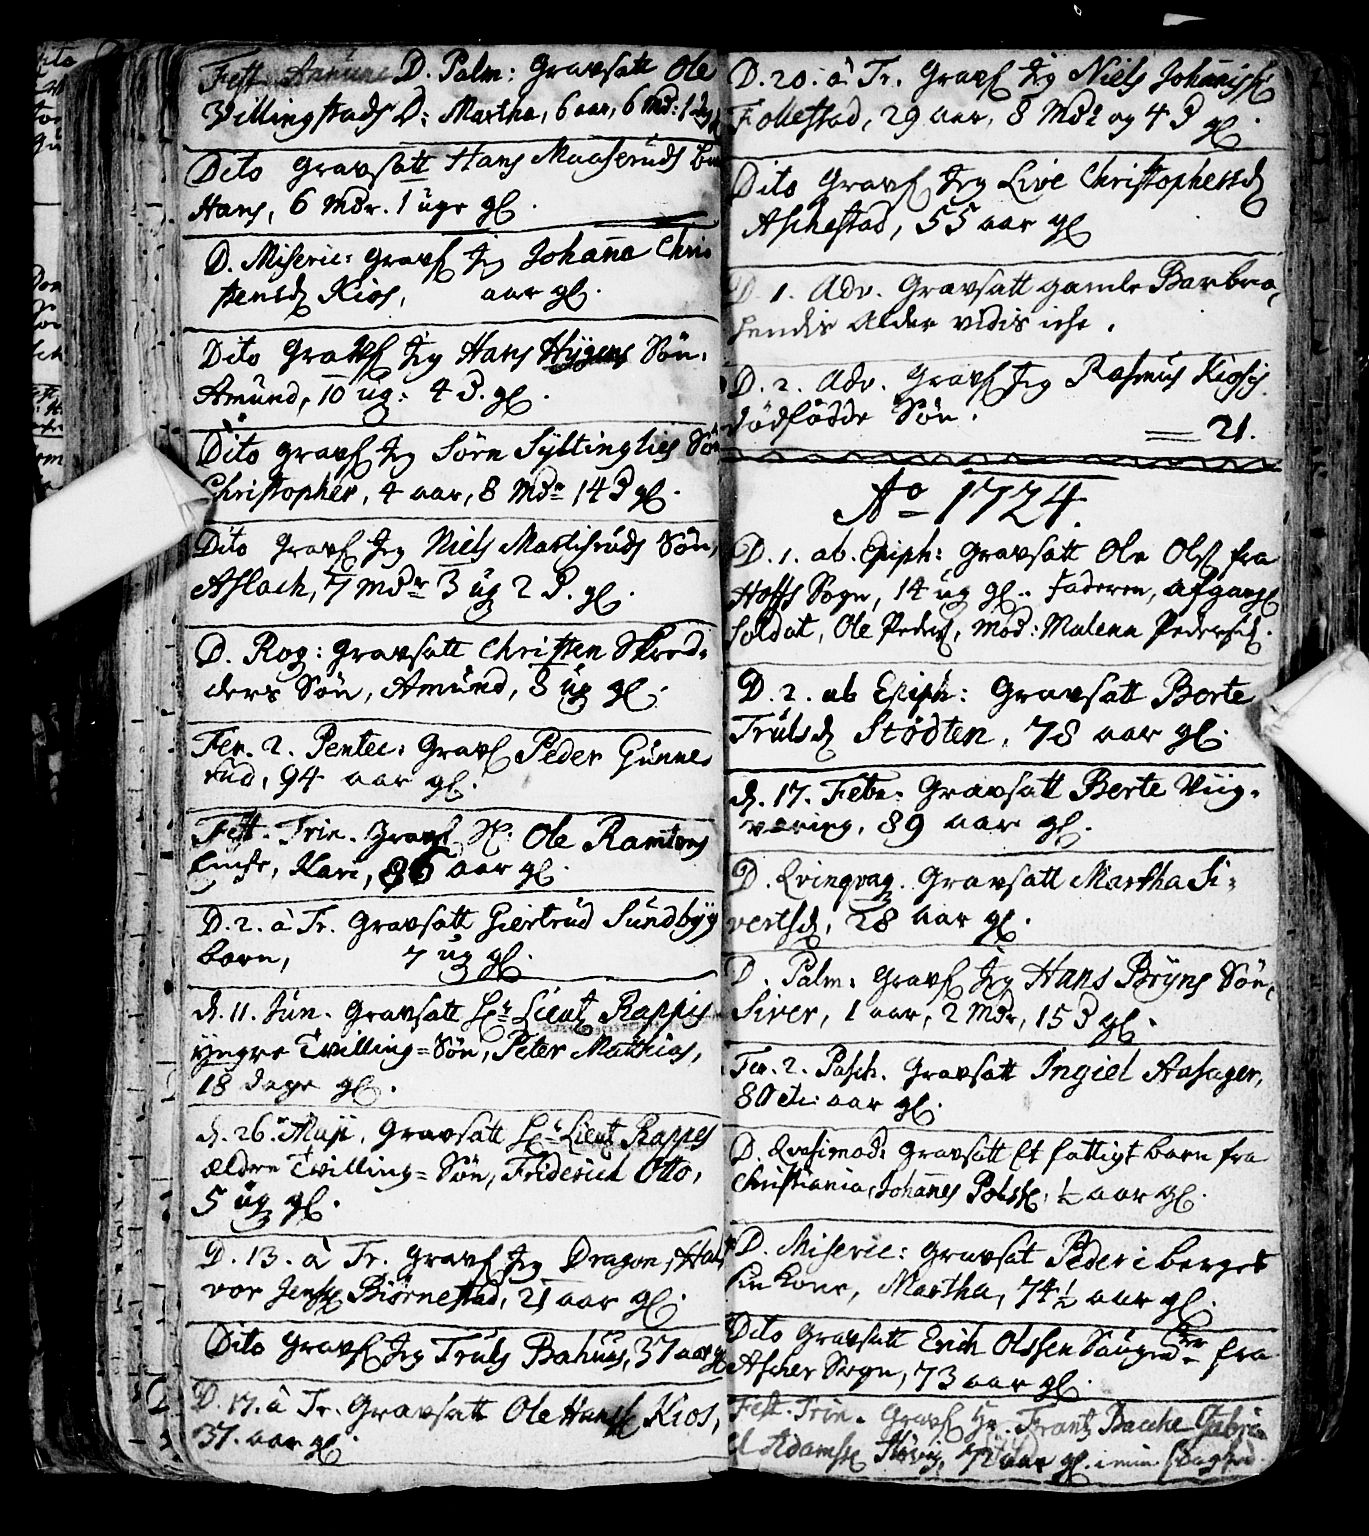 Fest. D. Palm: Gravsatt Ole
Villingstads D: Martha, 6 aar, 6 Mdr: 1 dag
Dito Gravsatt Hans Maaseruds
Hans, 6 Mdr. 1 uge gl.
D. Miseric: Gravs. Jeg Johana Chri
stensd. Kios, aar gl.
Dito Gravs. Jeg Hans Hygens Søn,
Amund, 10 ug: 4 D. gl.
Dito gravs. Jeg Sørn Syltinglies Søn
Christopher, 4 aar, 8 Mdr 14 D gl.
Dito Gravs. Jeg Niels Martisruds Søn,
Aslach, 7 Mdr 3 ug 2 D. gl.
D. Rog: Gravsatt Christen Skred-
ders Søn, Amund, 8 ug gl.
Fer. 2. Pentec: Gravs. Peder Gunne
rud, 94 aar gl.
Fest. Trin. Gravs. Ole Ramtons
Kari, 86 aar gl.
D. 2. à Tr. Gravsatt Giertrud Sundbyg
barn, 7 ug gl.
d. 11. Jun. Gravsatt Hr Lieut Rappis
yngre Tvilling=Søn, Peter Mathias,
18 dage gl.
d. 26. Gravsatt Hr Lieut Rappes
ældre Tvilling=Søn, Friderich Otto,
5 ug gl.
D. 13. à Tr. Gravs. Jeg Dragon, Hal
vor Jens. Biørnestad, 21 aar gl.
Dito Gravs. Jeg Truls Bahuus, 37 aar gl
D. 17. à Tr. Gravsatt Ole Hans. Kios,
37. aar gl.
D. 20. à Tr. Gravs. Jeg Niels Johaniss.
Follestad, 29 aar, 8 Mdr og 4 D gl.
Dito Gravs. Jeg Live Christophersd.
Aschestad, 55 aar gl
D. 1. Adv. Gravsatt gamle Barbra,
hendis Alder vidis iche.
D. 2. Adv. Gravs. Jeg Rasmus Kiosis
dødfødde Søn.
= 21.
Ao 1724.
D. 1. ab. Epiph: Gravsatt Ole Ols. fra
Hoffs Sogn, 14 ug gl. Faderen, afgangs
Soldat, Ole Peders, Mod: Malena Pedersd.
D. 2. ab Epiph: Gravsatt Borte
Trulsd Stødten, 78 aar gl.
d. 17. Febr. Gravsatt Berte Viig-
væring, 89 aar gl.
D. Qvinqvag. Gravsatt Martha Si-
vertsd, 28 aar gl.
D. Palm: Gravs. Jeg Hans Bryns Søn,
Siver, 1 aar, 2 Mdr, 15 D gl.
Fer. 2. Pasch. Gravsatt Ingiel Aasager,
80 aar gl.
D. Qvasimod: Gravsatt Et fattigt barn fra
Christiania, Johanes Polsk, ½ aar gl.
D. Miseric: Gravsat Peder i berget
sin kone, Martha, 74 ½ aar gl.
Dito Gravsatt Erich Olssen fra
Ascher Sogn, 73 aar gl.
Fest. Trin. Gravs. Frantz Bacche Gabri
el Adams. aar gl. i min